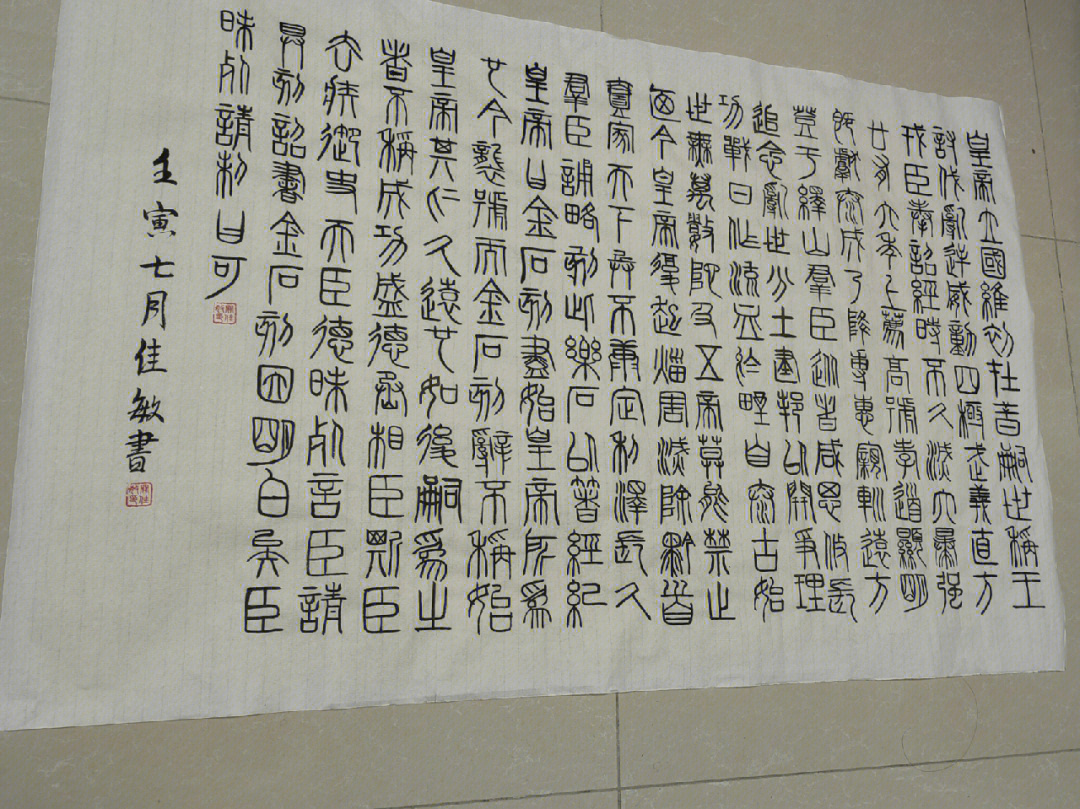 皇帝立國維初在昔嗣世稱王
討伐亂逆威動四極武義直方
戎臣奉詔經時不久滅六暴強
廿有六年上薦高號孝道顯明
既獻泰成乃降尃惠親巡遠方
登于繹山羣臣從者咸思攸長
追念亂世分土建邦以開爭理
功戰日作流血於野自泰古始
世無萬數陀及五帝莫能禁止
廼今皇帝復起烖害滅除黔首
壹家天下兵不康定利澤長久
羣臣誦略刻此樂石以箸經紀
皇帝曰金石刻盡始皇帝所爲
也今襲號而金石刻辭不稱始
皇帝其於久遠也如後嗣爲之
者不稱成功盛德丞相臣斯臣
去疾御史夫臣德昧死言臣請
具刻詔書金石刻因明白矣臣
昧死請制曰可
壬寅七月佳敏書